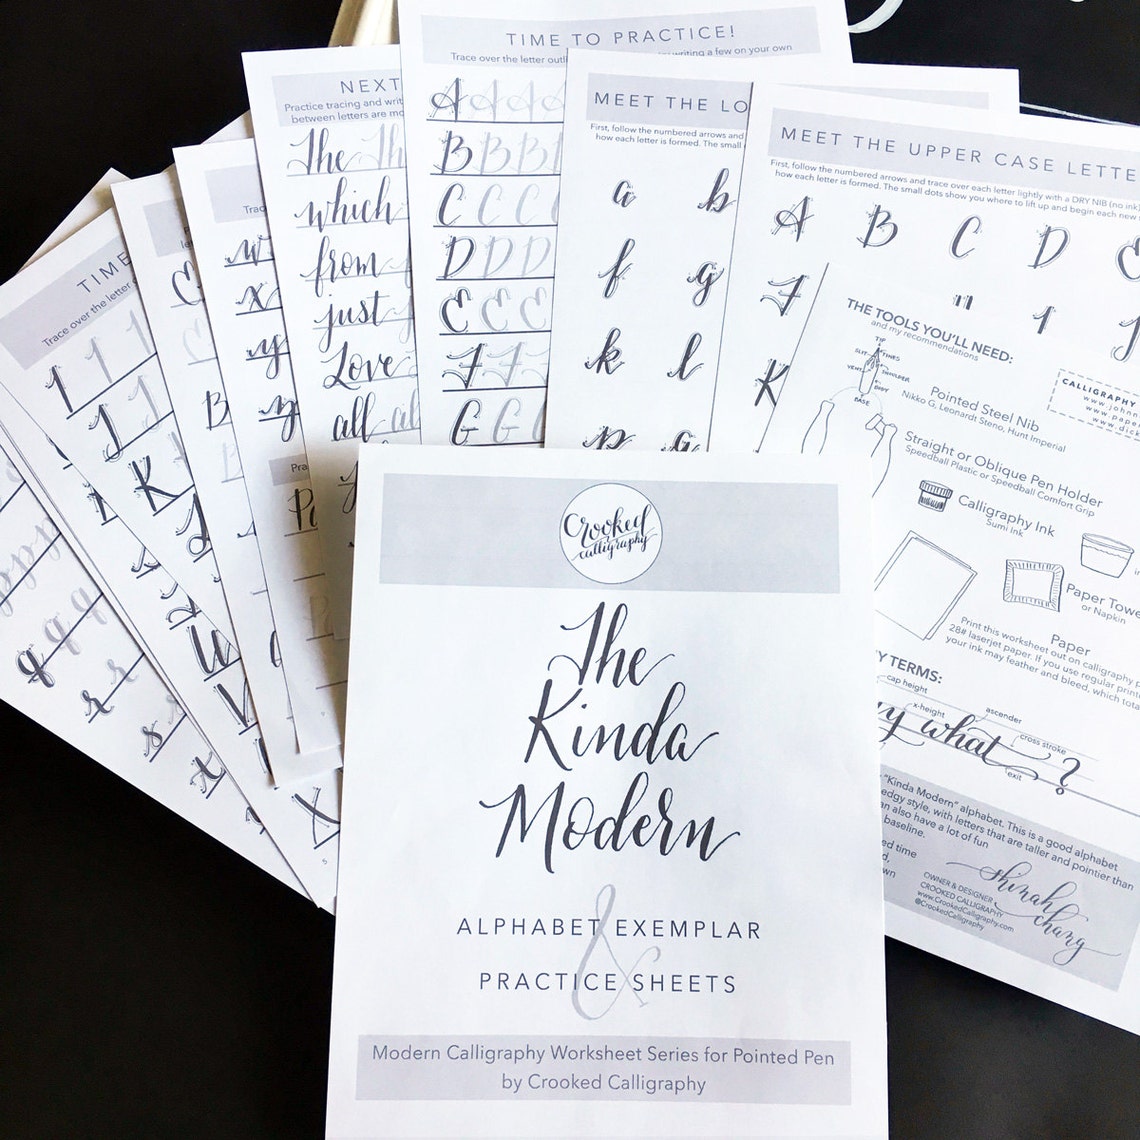 TIME TO PRACTICE!
Trace over the letter writing a few on your own
A A A A
B B B B
C C C C
D D D
E E E
F F F
G G G
NEXT
Practice tracing and
between letters are
The Th
which
from
just
Love
all all
MEET THE LO
First, follow the numbered arrows and
how each letter is formed. The small
a b
f g
k l
p q
MEET THE UPPER CASE LETTE
First, follow the numbered arrows and trace over each letter lightly with a DRY NIB (no ink)
how each letter is formed. The small dots show you where to lift up and begin each new
A B C D E
F
K
THE TOOLS YOU'LL NEED:
and my recommendations
TIP
SLIT TINES
VENT SHOULDER
BODY
BASE
CALLIGRAPHY
Pointed Steel Nib
Nikko G, Leonardt Steno, Hunt Imperial
Straight or Oblique Pen Holder
Speedball Plastic or Speedball Comfort Grip
Calligraphy Ink
Sumi Ink
Paper
or Napkin
Paper
Print this worksheet out on calligraphy
28# laserjet paper. If you use regular
your ink may feather and bleed, which
TERMS:
cap height
ascender
x-height
cross stroke
what ?
exit
"Kinda Modern" alphabet. This is a good alphabet
edgy style, with letters that are taller and pointier than
also have a lot of fun
baseline.
time
OWNER & DESIGNER
CROOKED CALLIGRAPHY
www.CrookedCalligraphy.com
@CrookedCalligraphy
Shinah Chang
TIME
Trace over the letter
I I I
J J J
K
w
x
y
z
q q q
r r
s s
t
X
5
Crooked
Calligraphy
The
Kinda
Modern
ALPHABET EXEMPLAR
&
PRACTICE SHEETS
Modern Calligraphy Worksheet Series for Pointed Pen
by Crooked Calligraphy